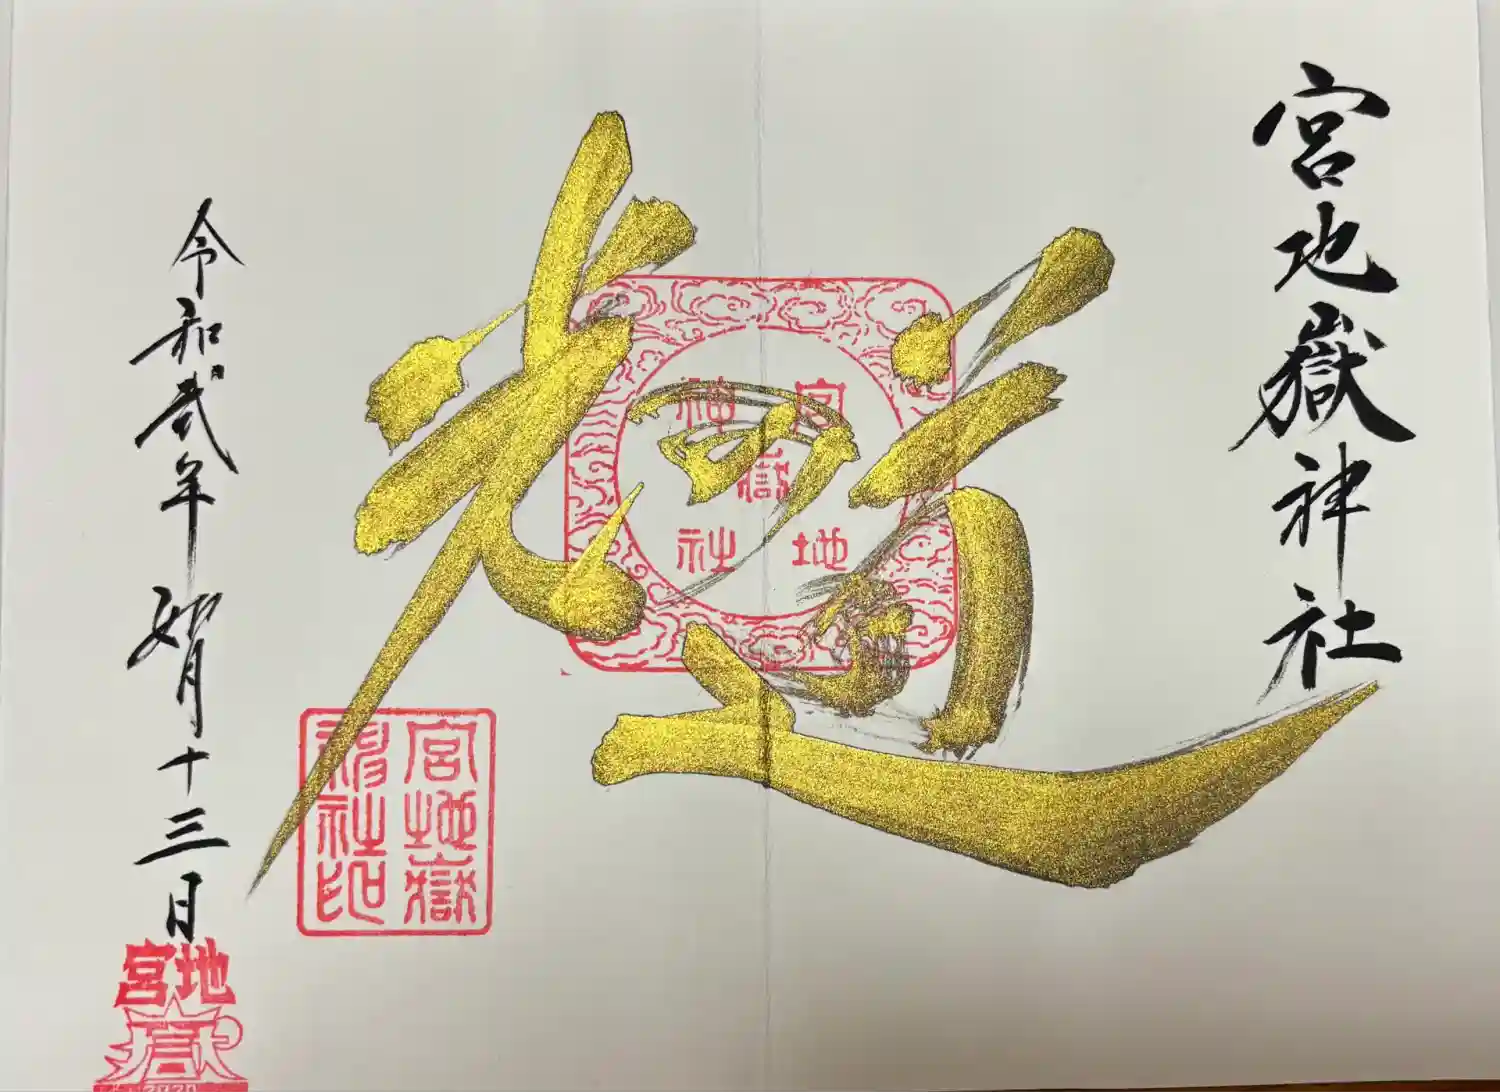 宮地嶽神社
光の道
宮地嶽神社
宮地嶽
神社印
令和弐年 如月十三日
宮地
嶽
2020